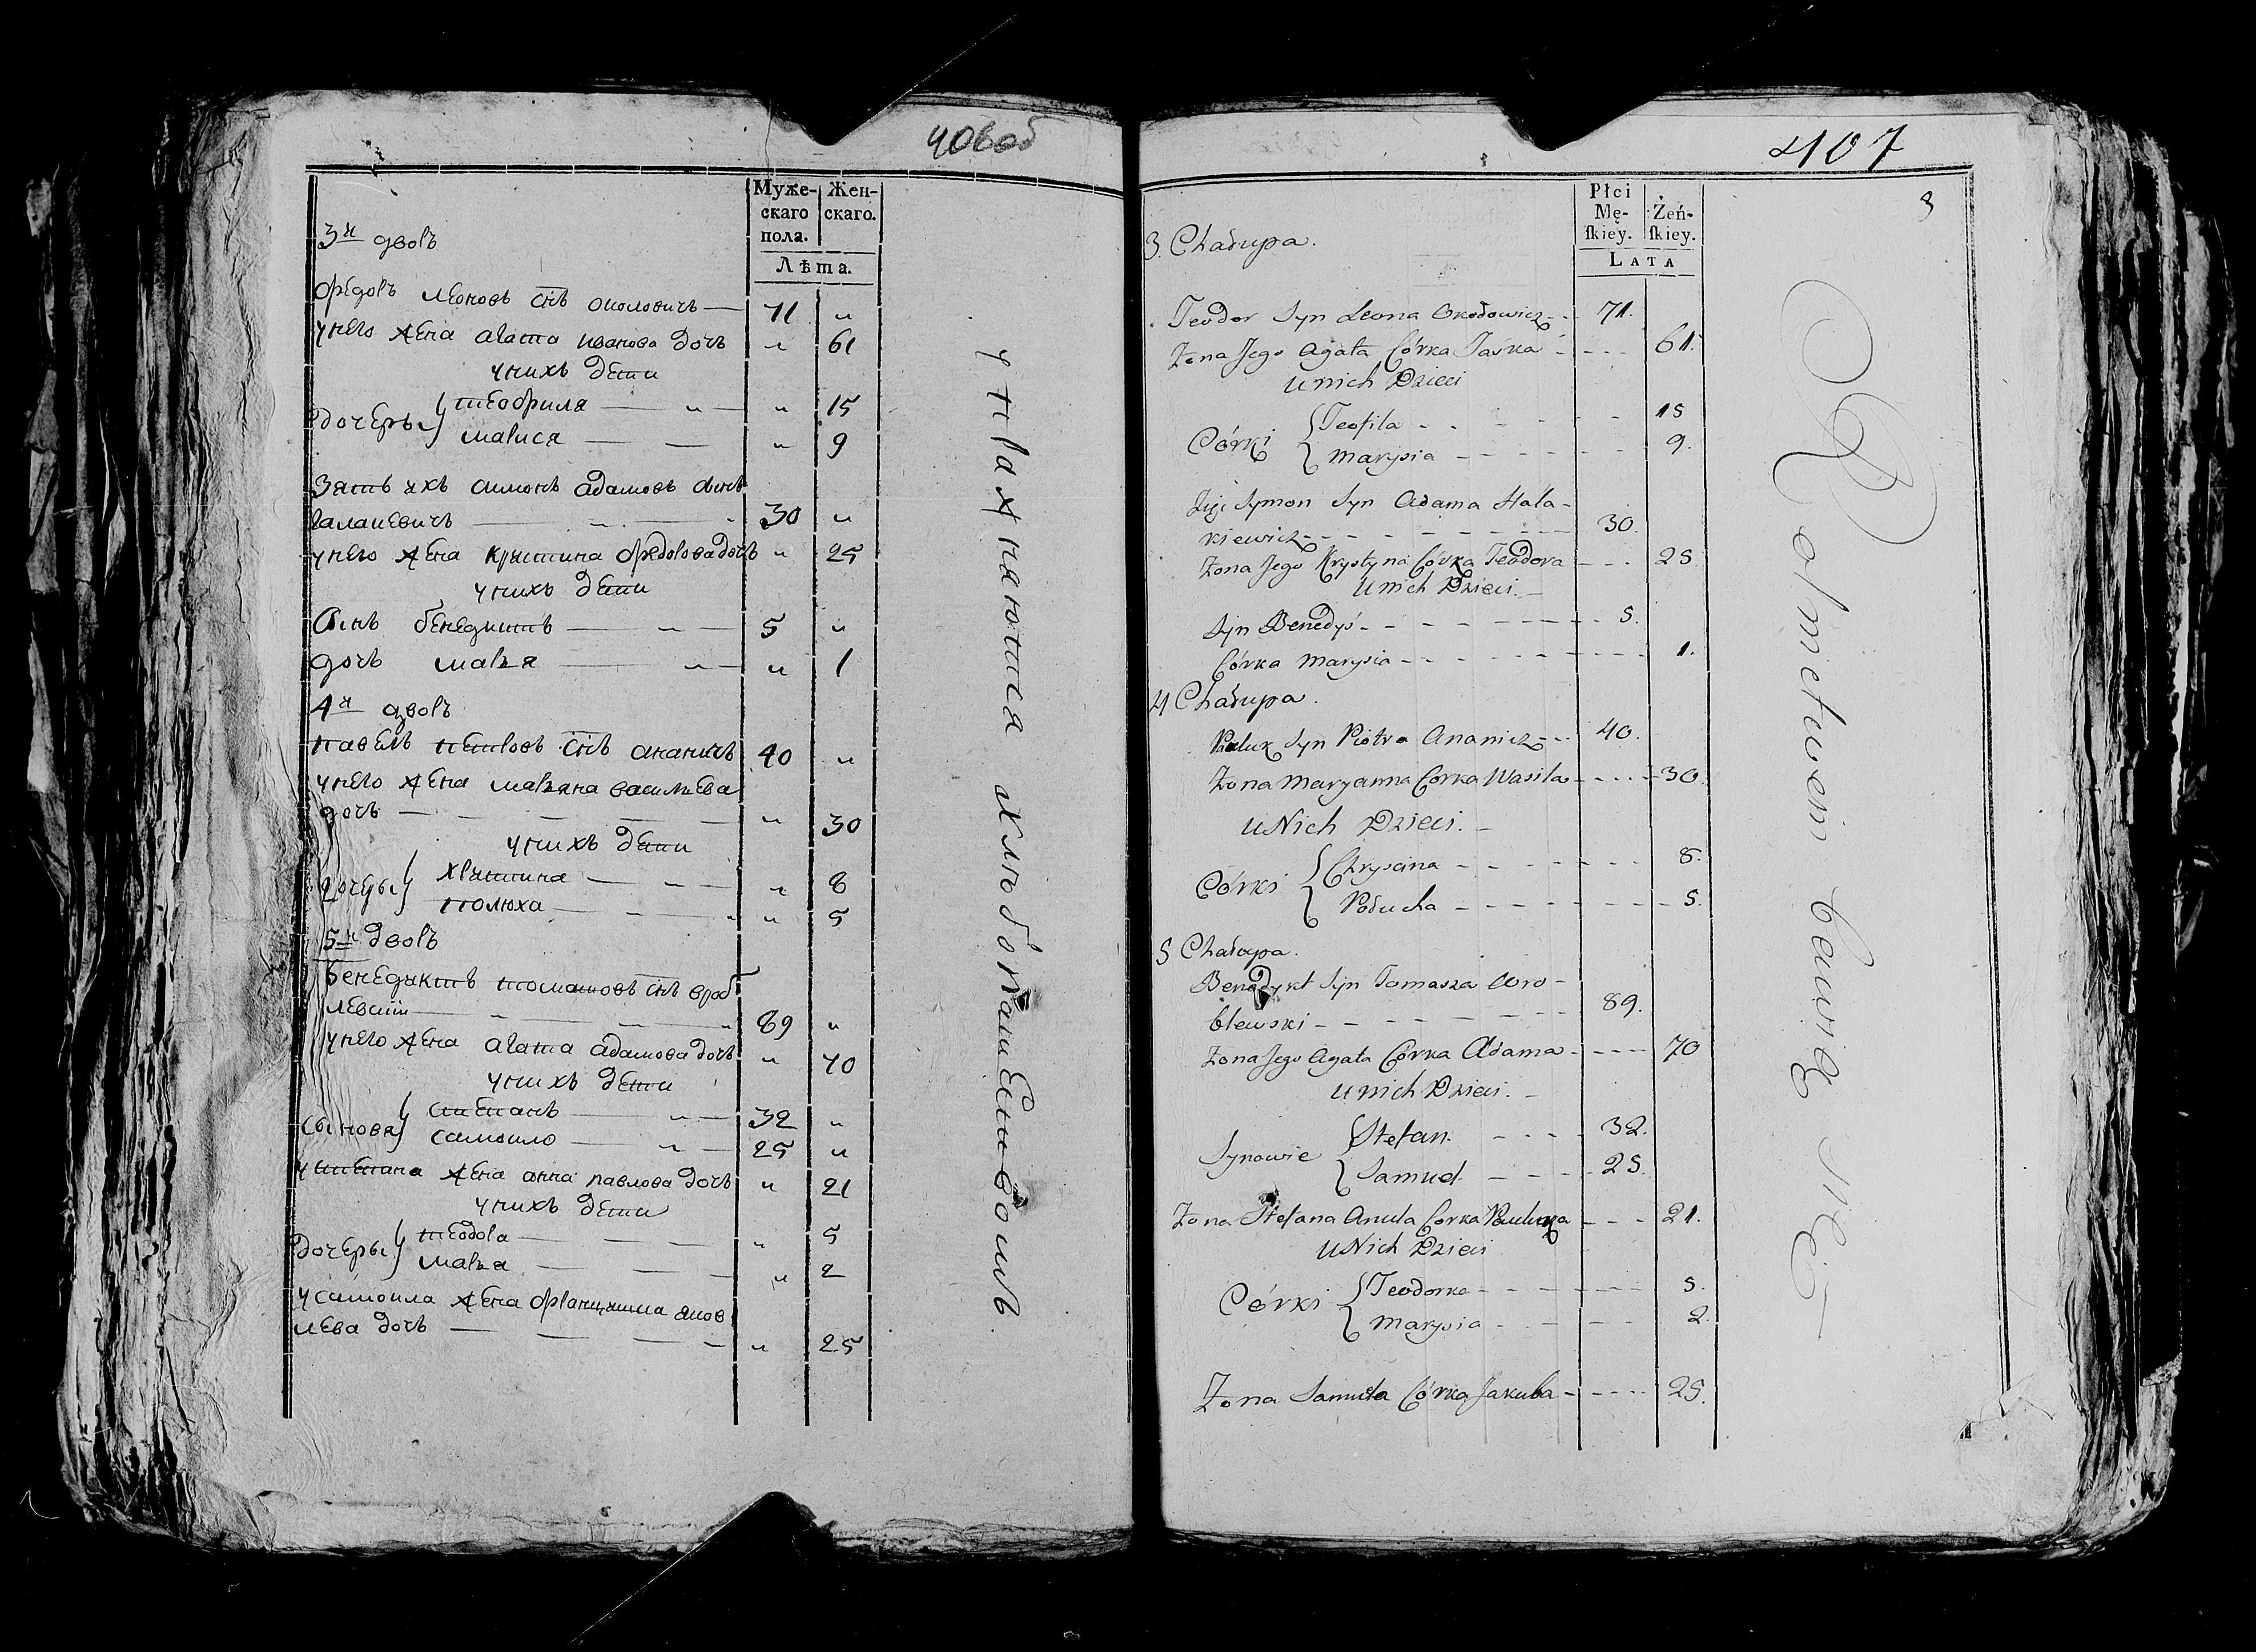 406об
Муже-
скаго
пола.
Жен-
скаго.
Лѣта.
3й дворъ
Ѳедоръ Леоновъ снъ Околовичъ — 71 "
у него жена Агата Иванова дочь " 61
у нихъ дети
дочеры Теофила — " — " 15
Марися — — " 9
Зять ихъ Симонъ Адамовъ сынъ
Галакевичъ — 30 "
у него жена Крыстина Федорова дочь " 25
у нихъ дети
Сынъ Бенедиктъ — " — 5 "
дочь Марья — " — " 1
4й дворъ
Павелъ Петровъ снъ Ананичъ 40 "
у него жена Марьяна Васильева
дочь — — — — " 30
у нихъ дети
дочеры Христина — — " 8
Полюха — — " 5
5й дворъ
Бенедиктъ Томашовъ снъ Вроб
левский — 89 "
у него жена Агата Адамова дочь " 70
у нихъ дети
сынова Степанъ — " — 32 "
Самоило — " — 25 "
у Степана жена Анна Павлова дочь " 21
у нихъ дети
дочеры Теодора — — " 5
Марья — — " 2
у Самоила жена Францишка Яков
лева дочь — — — " 25
407
3
Płci
Mę-
skiey.
Żeń-
skiey.
LATA
3. Chałupa.
Teodor Syn Leona Okołowicz - - 71.
Żona Jego Agata Córka Jaśka - - - - 61.
U nich Dzieci
Córki Teofila - - - - - 15
Marysia - - - - - - - 9.
Zięć Symon Syn Adama Hała-
kiewicz - - - - - - - - 30.
Żona Jego Krystyna Córka Teodora - - - 25
U nich Dzieci. -
Syn Benedyś - - - - - - - - 5.
Córka Marysia - - - - - - - - - 1.
4 Chałupa.
Pauluk Syn Piotra Ananicz - - 40.
Żona Maryanna Corka Wasila - - - - 30
U Nich Dzieci. -
Córki Chryscina - - - - - - 8.
Połucha - - - - - - - - 5.
5 Chałupa.
Benedykt Syn Tomasza Wro-
blewski - - - - - - - - 89.
Żona Jego Agata Córka Adama - - - - 70
U nich Dzieci. -
Synowie Stefan. - - - - 32.
Samuel. - - - - 25.
Żona Stefana Anula Corka Pauluka - - - 21.
U Nich Dzieci
Córki Teodorka - - - - - - - 5.
Marysia - - - - - 2.
Żona Samuela Córka Jakuba - - - - - 25.